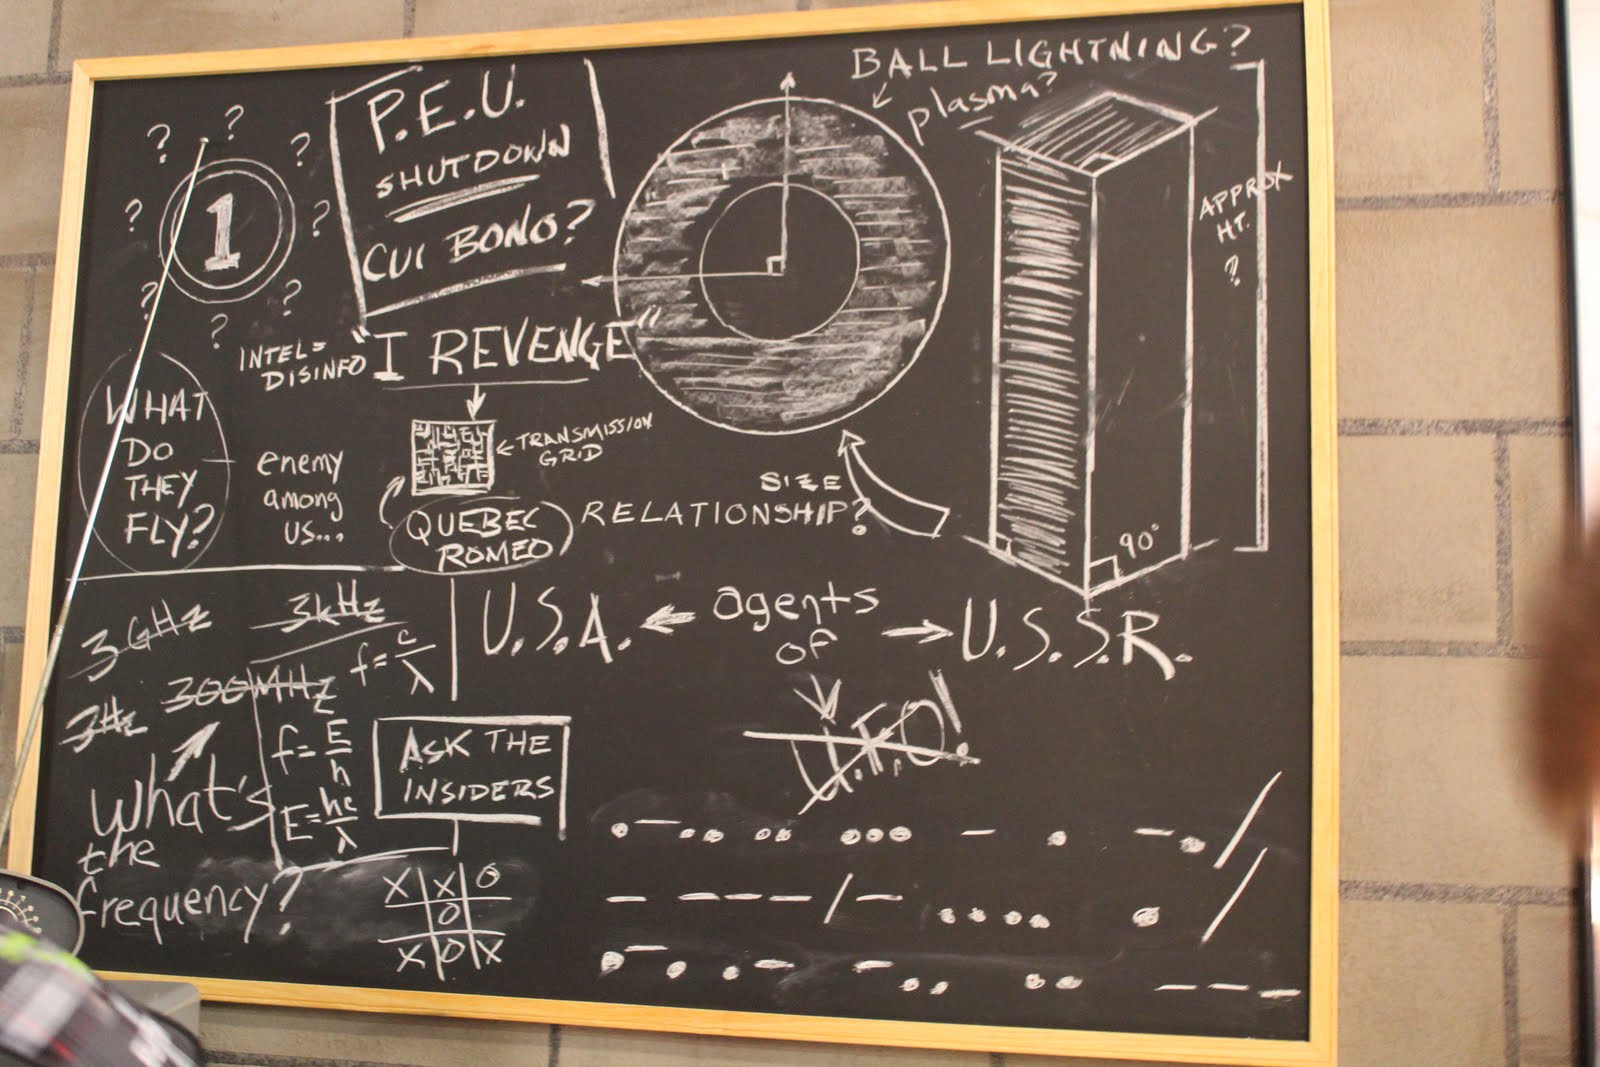 ? ? ? ? ? ? ? ? ?
1
P.E.U.
SHUTDOWN
CUI BONO?
BALL LIGHTNING?
plasma?
APPROX
HT.
?
90°
INTEL=
DISINFO
"I REVENGE"
WHAT
DO
THEY
FLY?
enemy
among
us...
TRANSMISSION
GRID
QUEBEC
ROMEO
SIZE
RELATIONSHIP?
3GHz
3kHz
3Hz
300MHz
f=c/λ
f=E/h
E=hc/λ
What's
the
frequency?
ASK THE
INSIDERS
X X O
O
X O X
U.S.A. ← agents → U.S.S.R.
of
U.F.O!
•− •• •• ••• − • −• /
− −−− / − •••• •
•− • •− −•• •• −−−